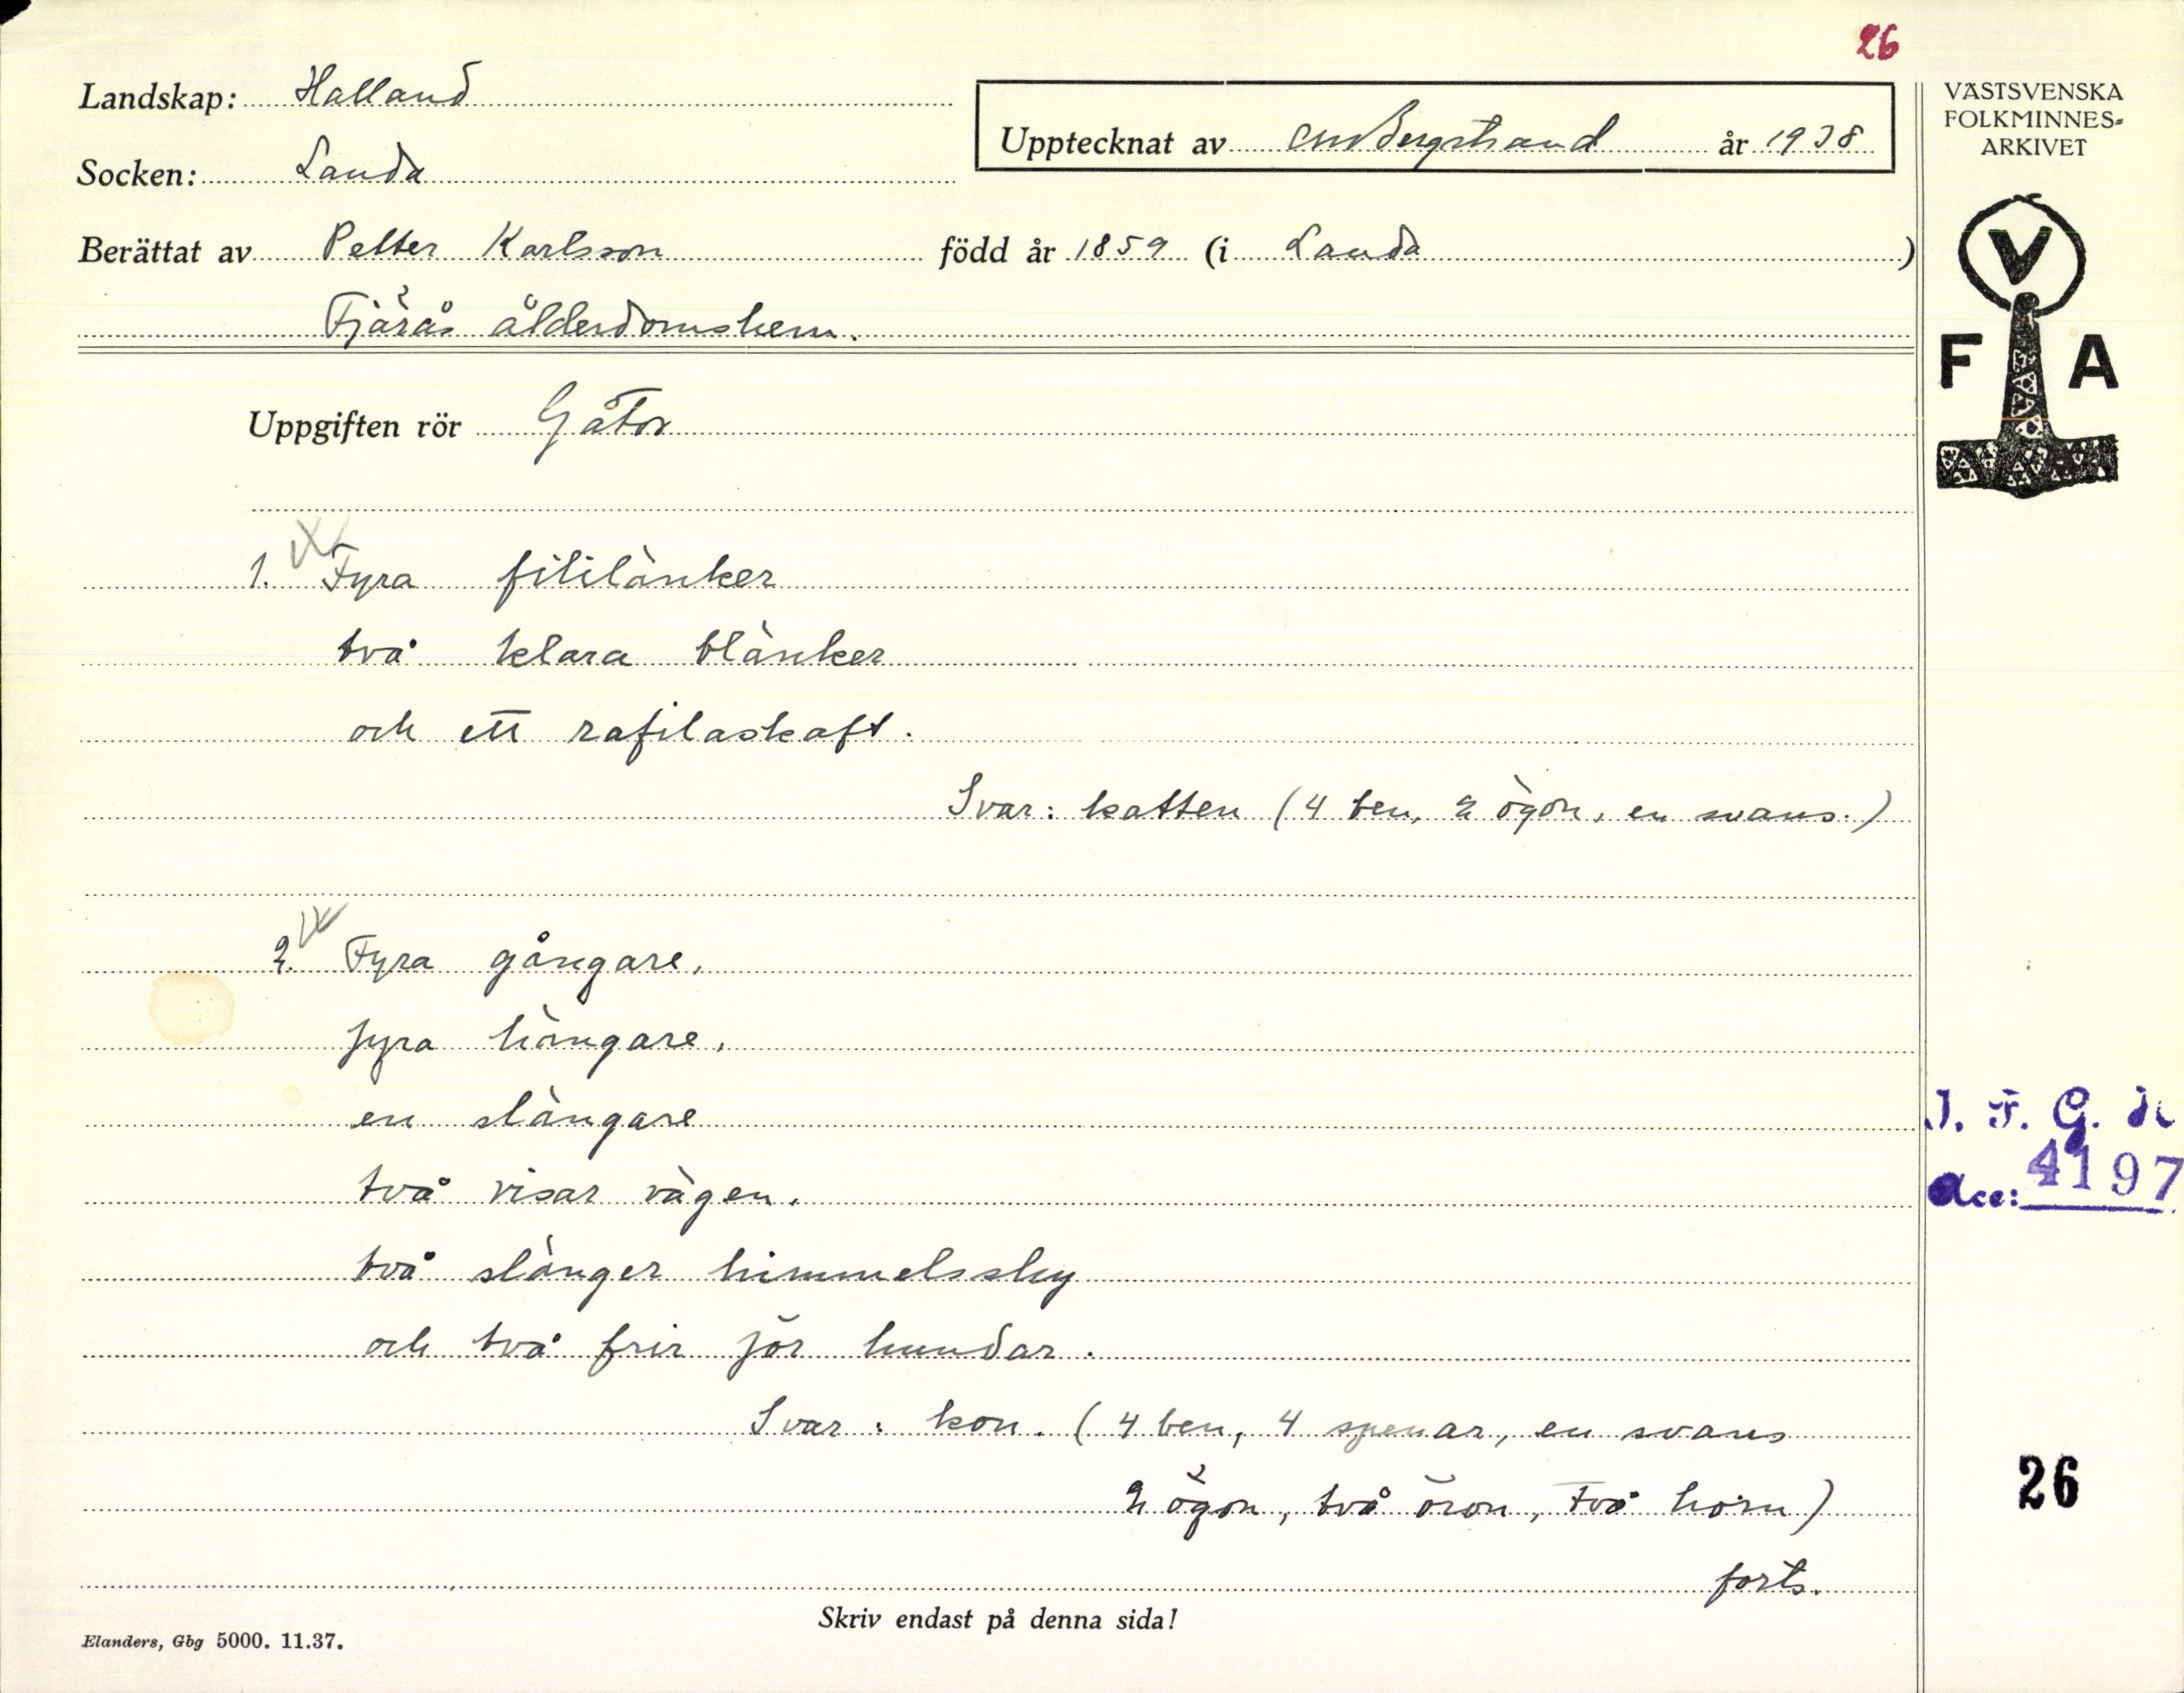 26
Landskap: Halland
Socken: Landa
Upptecknat av CM Bergstrand år 1938
Berättat av Petter Karlsson född år 1859 (i Landa)
Fjärås ålderdomshem.
Uppgiften rör Gåtor
1. Fyra fililänker
två klara blänker
och ett rafilaskaft.
Svar: katten (4 ben, 2 ögon, en svans.)
2. Fyra gångare,
fyra hängare,
en slängare
två visar vägen,
två slänger himmelssky
och två frir för hundar.
Svar: kon. (4 ben, 4 spenar, en svans
2 ögon, två öron, två horn)
forts.
Skriv endast på denna sida!
Elanders, Gbg 5000. 11.37.
VÄSTSVENSKA
FOLKMINNES-
ARKIVET
V
F A
I. F. G. H
Acc: 4197
26